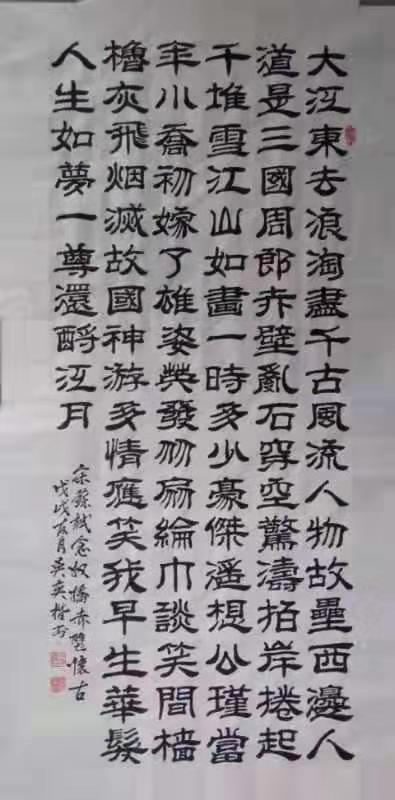 大江東去浪淘盡千古風流人物故壘西邊人
道是三國周郎赤壁亂石穿空驚濤拍岸捲起
千堆雪江山如畫一時多少豪傑遙想公瑾當
年小喬初嫁了雄姿英發羽扇綸巾談笑間檣
櫓灰飛烟滅故國神游多情應笑我早生華髮
人生如夢一尊還酹江月
宋蘇軾念奴嬌赤壁懷古
戊戌月